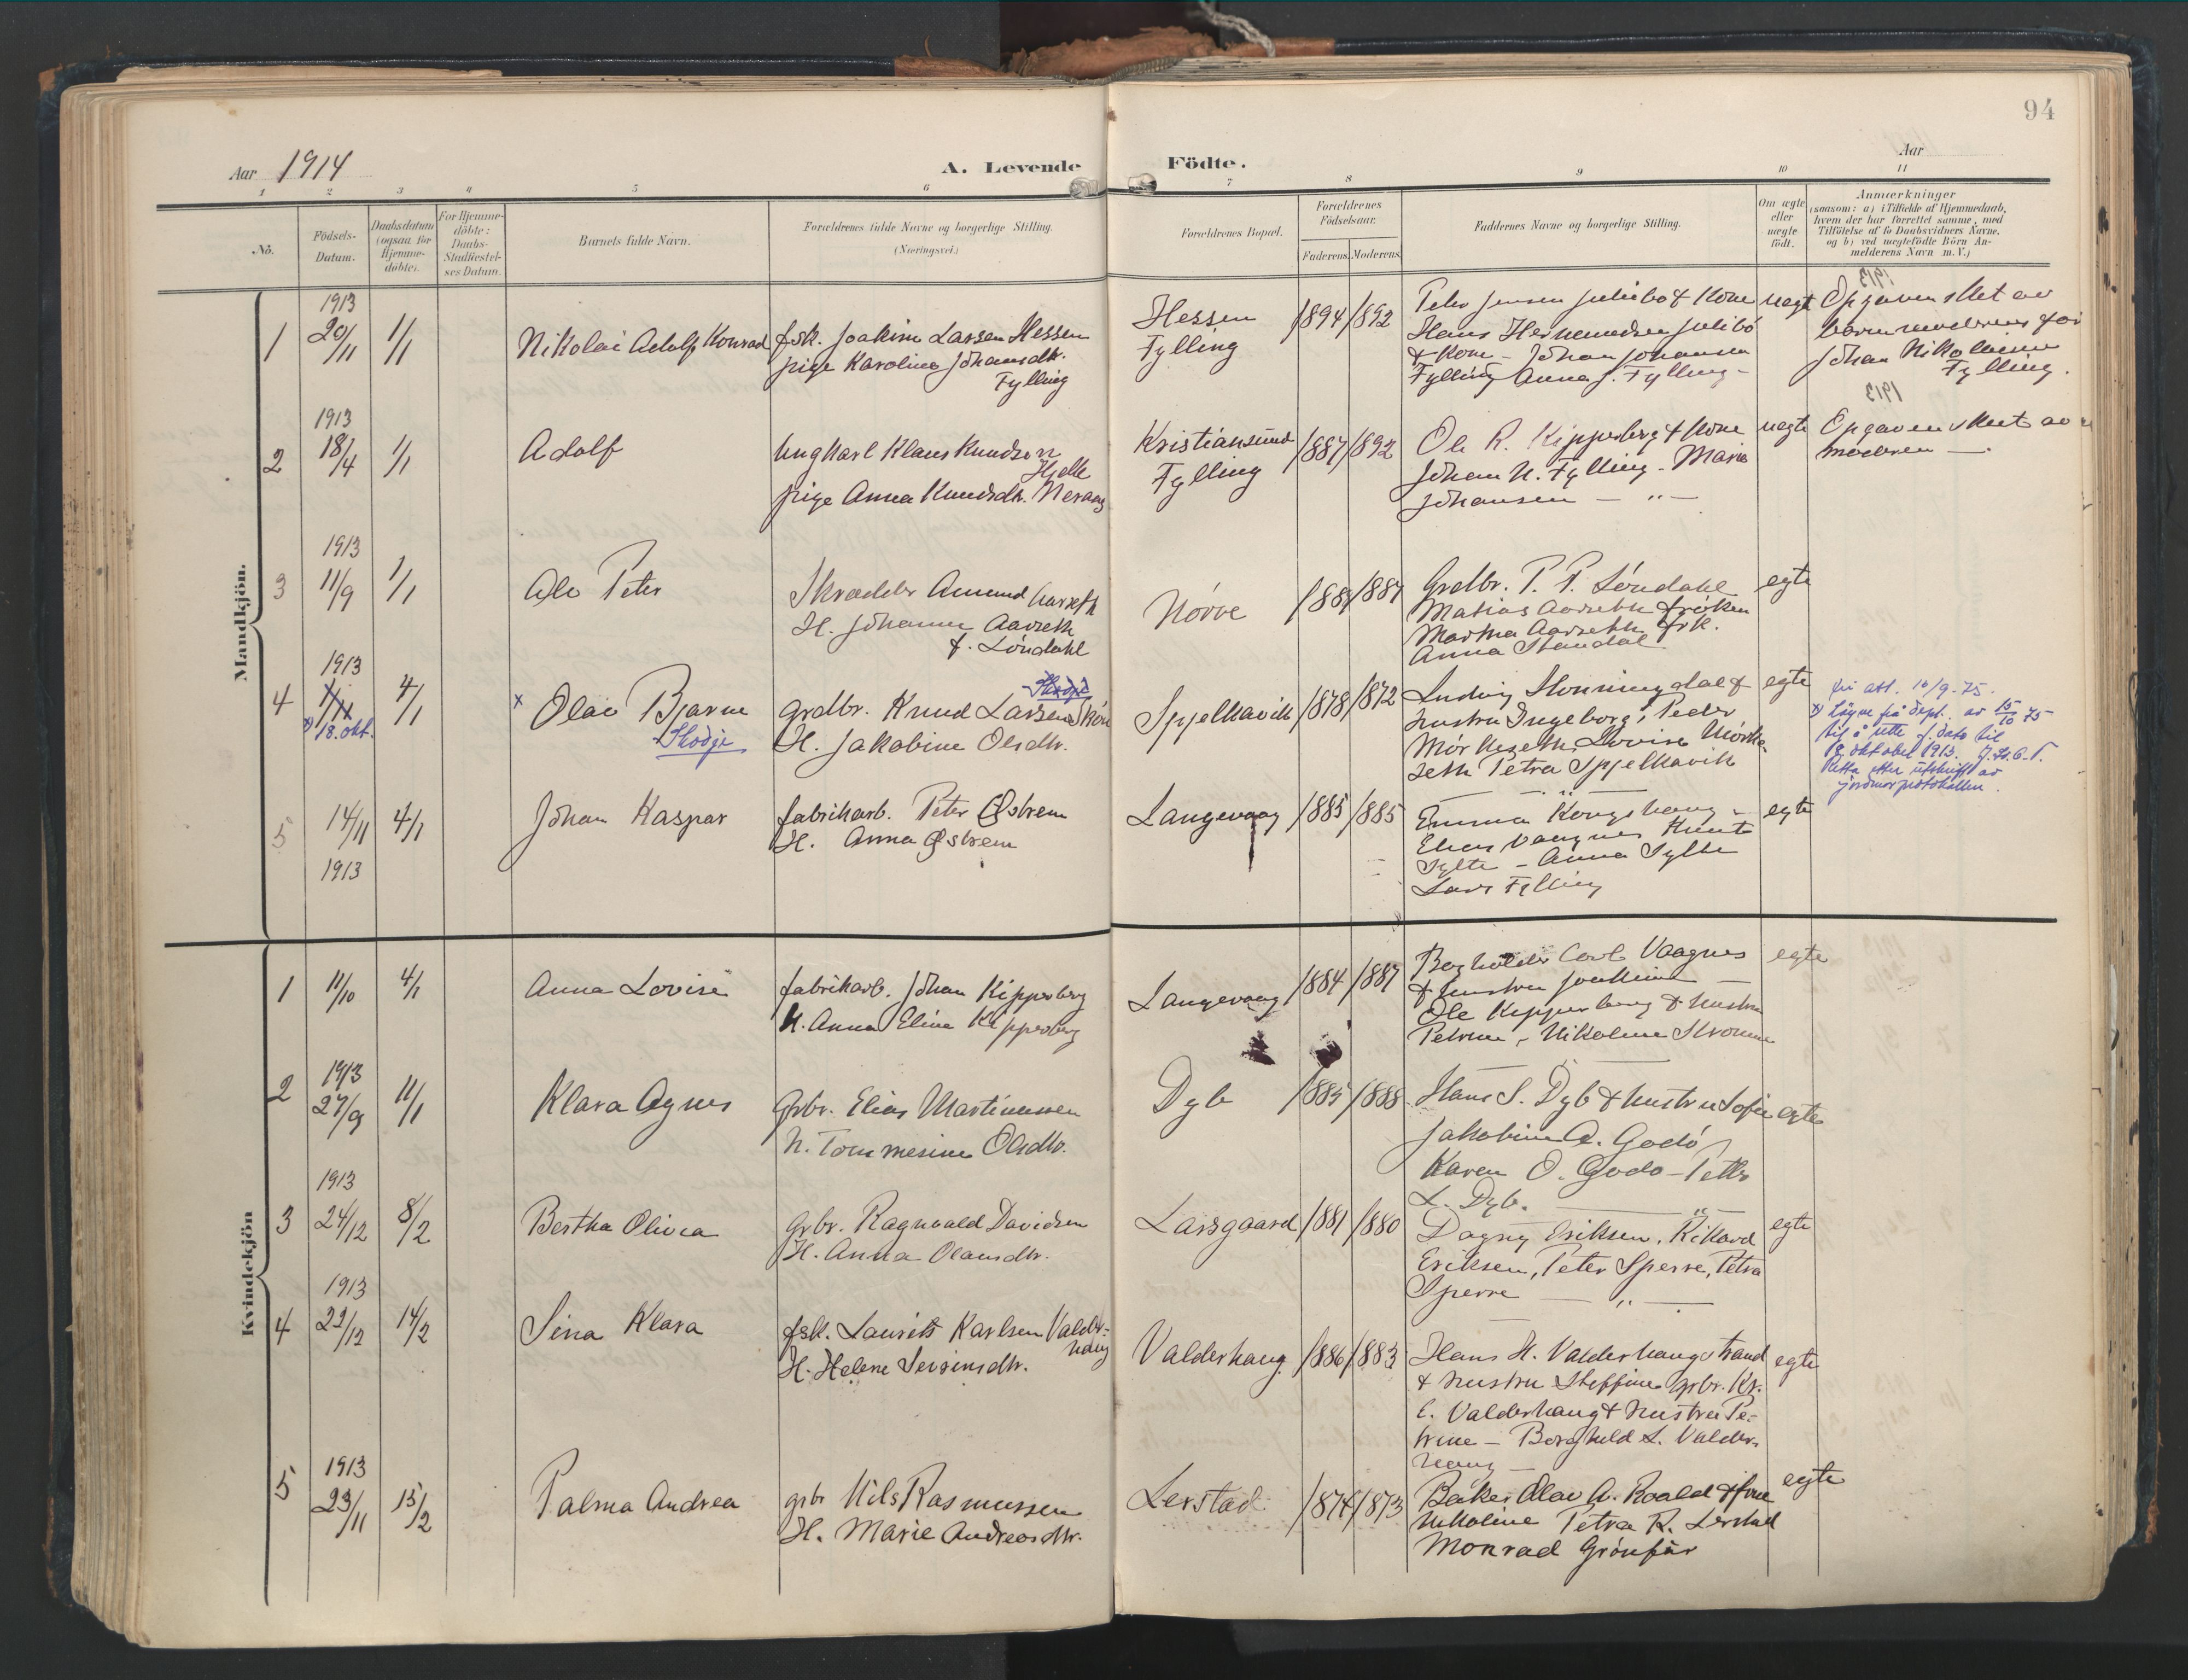 94
Aar 1914
A. Levende Födte.
Aar
1 2 3 4 5 6 7 8 9 10 11
No.
Födsels-
Datum.
Daabsdatum
(ogsaa for
Hjemme-
döbte).
For Hjemme-
döbte:
Daabs-
Stadfæstel-
ses Datum.
Barnets fulde Navn.
Forældrenes fulde Navne og borgerlige Stilling.
(Næringsvei.)
Forældrenes Bopæl.
Forældrenes
Födselsaar.
Faderens. Moderens.
Faddernes Navne og borgerlige Stilling.
Om ægte
eller
uægte
födt.
Anmærkninger
(saasom: a) i Tilfælde af Hjemmedaab,
hvem der har forrettet samme, med
Tilföielse af to Daabsvidners Navne,
og b) ved uægtefödte Börn An-
melderens Navn m. V.)
Mandkjön.
1
1913
20/11
1/1
Nikolai Adolf Konrad
fsk. Joakim Larsen Hessen
pige Karoline Johansdtr.
Fylling
Hessen
Fylling
1894 1892
Peter Jensen & Kone
Hans
& Kone - Johan Johansen
Fylling Anna J. Fylling -
uegte
Opgaven sket av
barnemoderens far
Johan Nikolaisen
Fylling.
2
1913
18/4
1/1
Adolf
Ungkarl Klaus Knudson
Hjelle
pige Anna Knudsdtr.
Kristiansund
Fylling
1887 1892
Ole R. Kipperberg & Kone
Johan N. Fylling - Marie
Johansen - " -
uegte
Opgaven sket av
moderen -
3
1913
11/9
1/1
Ole Peter
Skrædder Amund Aarseth
H. Johanne Aarseth
f. Löndahl
Nörve
1887
Grdbr. P. P. Löndahl
Matias Aarseth fröken
Martha Aarseth frk.
Anna Standal
egte
4
1913
1/11
x) 18. okt.
4/1
x Olav Bjarne
Skodje
grdbr. Knud Larsen
Skodje
H. Jakobine Olsdtr.
Spjelkavik
1878 1872
Ludvig Honningdal &
hustru Ingeborg, Peder
Mörkeseth, Lovise Mörke-
seth Petra Spjelkavik
egte
att. 16/9-75.
x) Löyve frå dept. av 15/10 75
til å rette f. dato til
18 oktober 1913.
Retta etter utskrift av
jordmorprotokollen.
5
14/11
1913
4/1
Johan Kaspar
fabrikarb. Peter Østrem
H. Anna Østrem
Langevaag
1885 1885
Emma Kongshaug -
Elias Vaagnes Knut
Sylte - Anna Sylte
Lars Fylling
egte
Kvindekjön
1
11/10
4/1
Anna Lovise
fabrikarb. Johan Kipperberg
H. Anna Eline Kipperberg
Langevaag
1884 1887
Bogholder Carl Vaagnes
& hustru Joakime
Ole Kipperberg & hustru
Petrine, Nikoline Strömme
egte
2
1913
27/9
11/1
Klara Agnes
Grbr. Elias Martinussen
H. Tommesine Olsdtr.
Dyb
1885 1888
Hans S. Dyb & hustru Sofie
Jakobine A. Godö
Karen O. Godö - Petter
L. Dyb.
egte
3
1913
24/12
8/2
Bertha Olivia
Grbr. Ragnvald Davidsen
H. Anna Olausdtr.
Larsgaard
1881 1880
Dagny Eriksen, Rikard
Eriksen, Peter Sperre, Petra
Sperre - " -
egte
4
1913
22/12
14/2
Sina Klara
fsk. Laurits Karlsen Valder-
haug
H. Helene Seversinsdtr.
Valderhaug
1886 1883
Hans H. Valderhaugstrand
& hustru Steffine grbr. Kr.
E. Valderhaug & hustru Pe-
trine - Borghild L. Valder-
haug -
egte
5
1913
23/11
15/2
Palma Andrea
grbr Nils Rasmussen
H. Marie Andreasdtr.
Lerstad
1874 1873
Baker Olav A. Roald & frue
Nikoline Petra R. Lerstad
Monrad Grönfur
egte